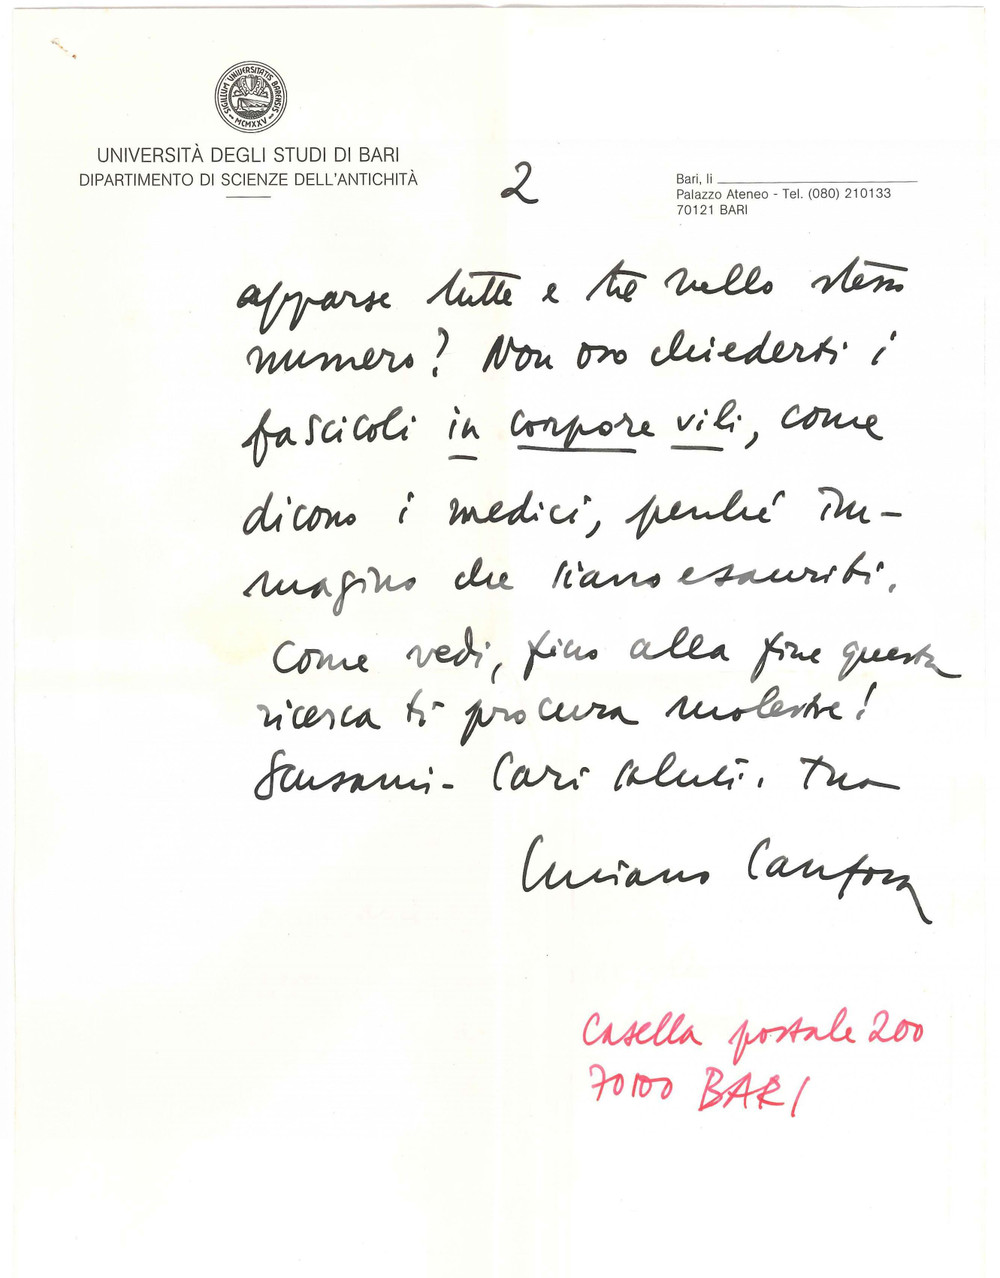 SIGILLUM UNIVERSITATIS BARENSIS
MCMXXV
UNIVERSITÀ DEGLI STUDI DI BARI
DIPARTIMENTO DI SCIENZE DELL'ANTICHITÀ
2
Bari, li
Palazzo Ateneo - Tel. (080) 210133
70121 BARI
apparse tutte e tre nello stesso
numero? Non oso chiederti i
fascicoli in corpore vili, come
dicono i medici, perché im-
magino che siano esauriti.
Come vedi, fino alla fine questa
ricerca ti procura molestie!
Scusami - Cari saluti. Tuo
Luciano Canfora
Casella postale 200
70100 BARI